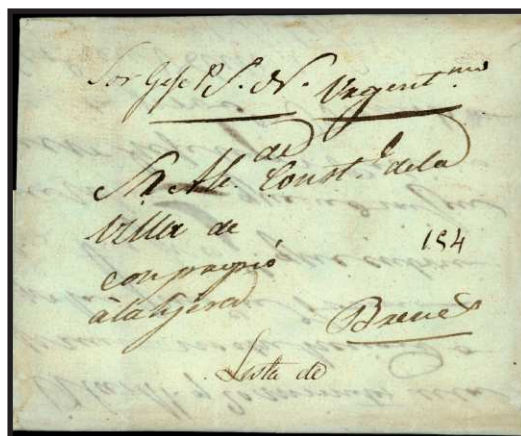 Por Gefe P. S. N. Urgent.mo
de
Sr. Alc. Const.l de la
Villa de
con propio
a la ligera
154
Brenes
Justa de